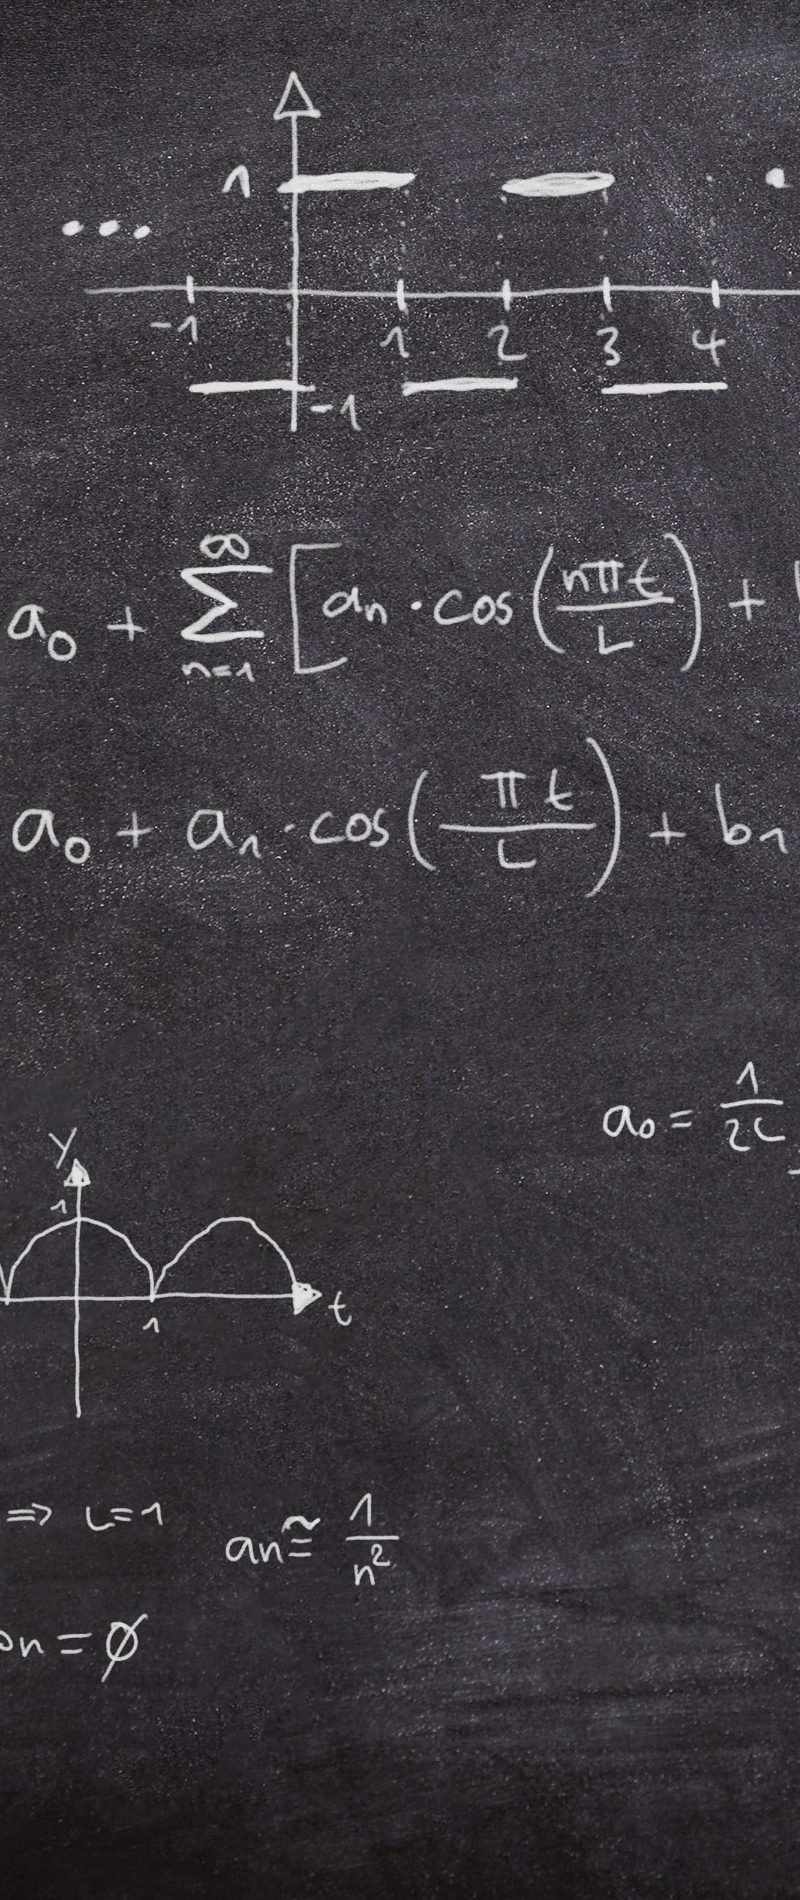 1
...
-1 1 2 3 4
-1
a₀ + ∑ₙ₌₁^∞ [aₙ · cos(nπt/L) +
a₀ + a₁ · cos(πt/L) + b₁
a₀ = 1/2L
y
1
1
t
⇒ L=1
an ≅ 1/n²
n = ∅